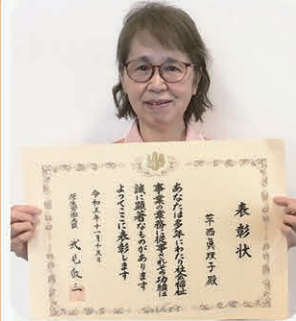 表彰状
草西眞理子殿
あなたは多年にわたり社会福祉
事業の業務に従事されその功績は
誠に顕著なものがあります
よってここに表彰します
令和五年十一月十五日
厚生労働大臣 武見敬三